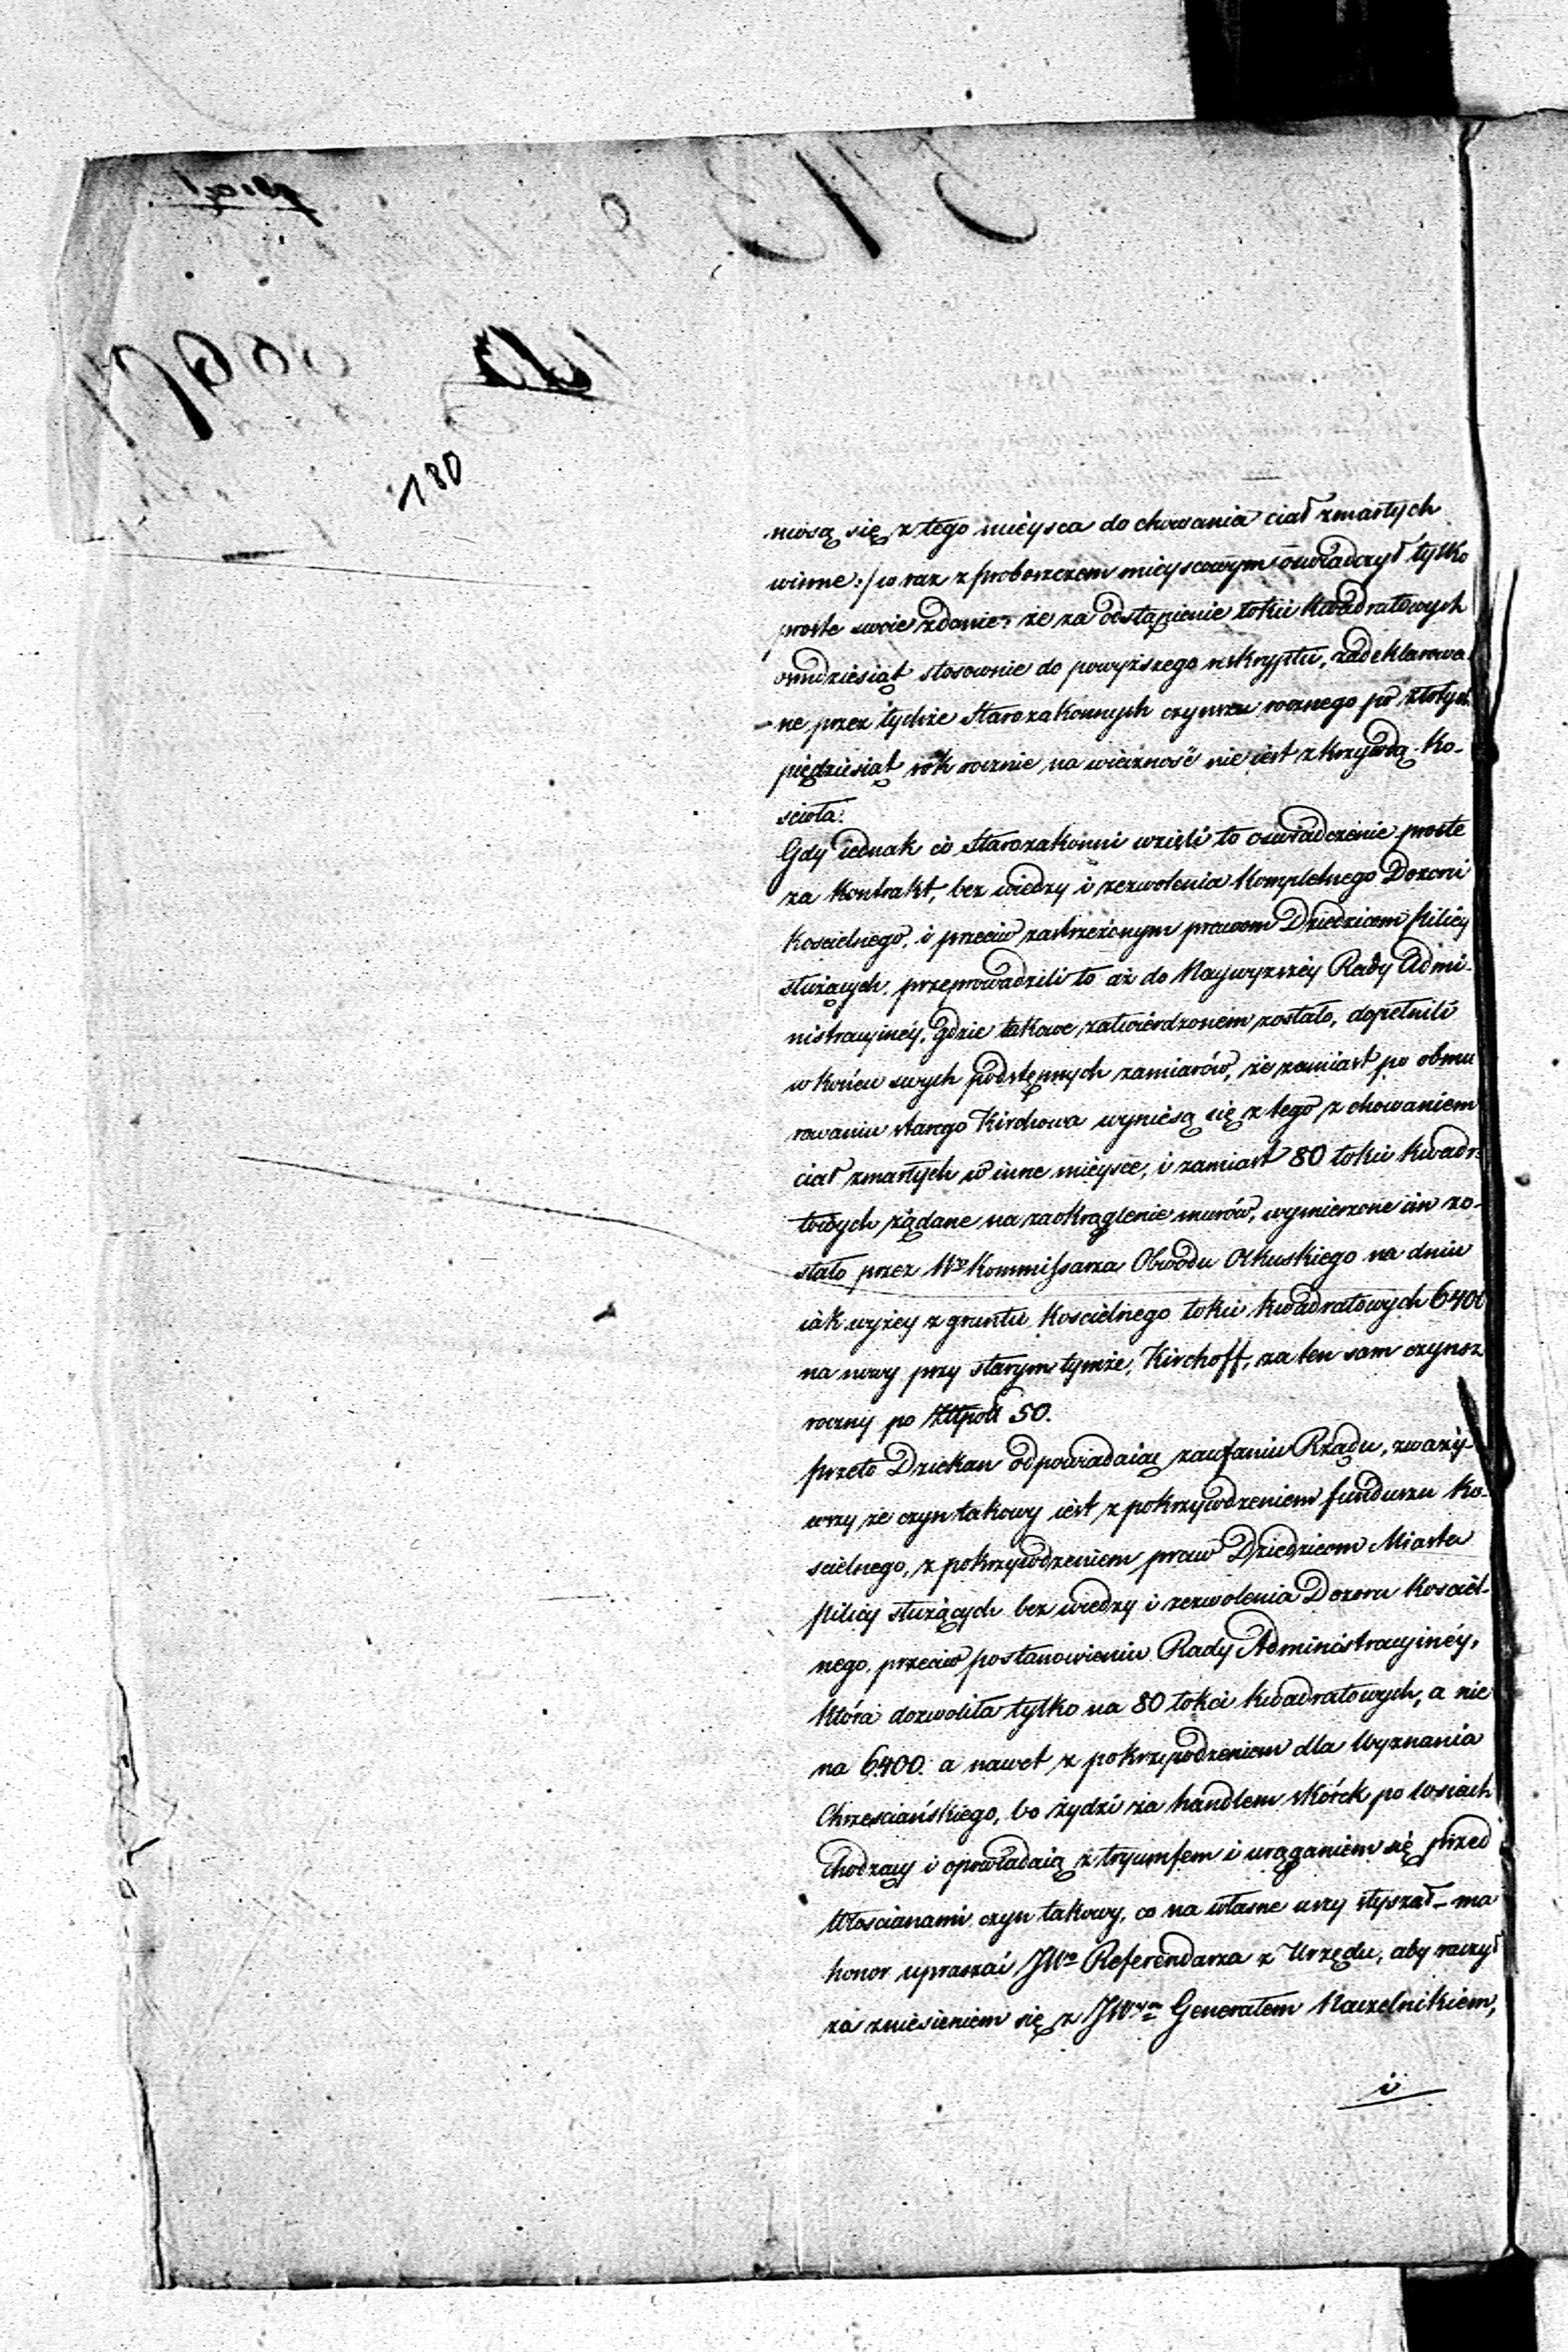 180
niosą się z tego mieysca do chowania ciał zmarłych
winne :/ w raz z proboszczem mieyscowym oświadczył tylko
proste swoie zdanie, że za odstąpienie łokci kwadratowych
osmdziesiąt stosownie do powyższego reskryptu, zadeklarowa
ne przez tychże Starozakonnych czynszu rocznego po złotych
pięćdziesiąt rok rocznie na wieczność nie iest z krzywdą Ko-
scioła.
Gdy iednak ci Starozakonni wzięli to oswiadczenie proste
za Kontrakt, bez wiedzy i zezwolenia Kompletnego Dozoru
Koscielnego, i przeciw zastrzeżonym prawom Dziedzicom Pilicy
służących, przeprowadzili to aż do Naywyższéy Rady Admi-
nistracyinéy, gdzie takowe zatwierdzonem zostało, dopełnili
w końcu swych podstępnych zamiarów, że zamiast po obmu
rowaniu starego Kirchowa wyniésą się z tego z chowaniem
ciał zmarłych w inne mieysce, i zamiast 80 łokci kwadra
towych żądane na zaokrąglenie murów, wymierzone im zo-
stało przez Wo Kommissarza Obwodu Olkuskiego na dniu
iak wyżey z gruntu Koscielnego łokci kwadratowych 6400
na nowy przy starym tymże, Kirchoff, za ten sam czynsz
roczny po Złtpol 50.
przeto Dziekan odpowiadaiąc zaufaniu Rządu, zważy-
wszy że czyn takowy iest z pokrzywdzeniem funduszu Ko-
scielnego, z pokrzywdzeniem praw Dziedzicom Miasta
Pilicy służących bez wiedzy i zezwolenia Dozoru Kosciel-
nego, przeciw postanowieniu Rady Administracyinéy,
Która dozwoliła tylko na 80 łokci kwadratowych, a nie
na 6400. a nawet z pokrzywdzeniem dla Wyznania
Chrzesciańskiego, bo żydzi za handlem skórek po wsiach
chodzący i opowiadaią z tryumfem i urąganiem się przed
Włoscianami czyn takowy, co na własne uszy słyszał – ma
honor upraszać JWo Referendarza z Urzędu, aby raczył
za zniesieniem się z JWym Generałem Naczelnikiem,
i